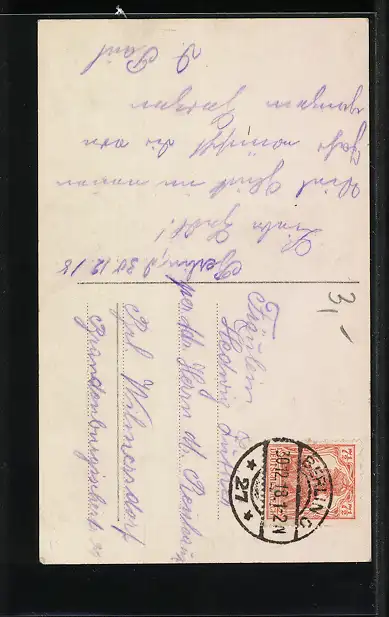 Berlin, d. 30.12.18
Liebe Hedi!
Viel Glück im neuen
Jahr wünscht dir von
ganzem Herzen
P. Paul
3,-
Fräulein
Hedwig
per Adr. Herrn
Bln. Wilmersdorf
Brandenburgischestr. 39
BERLIN C
30.12.18.1-2N
* 27 *
7½ 7½